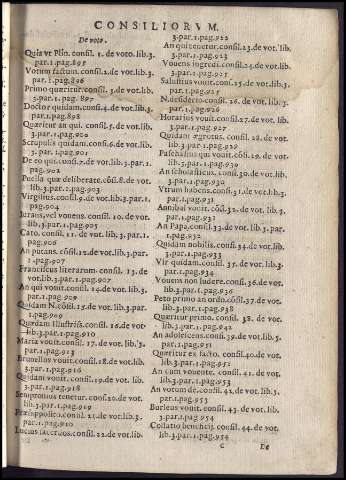 CONSILIORVM.
De voto.
Quia vt Plin. consil. 1. de voto. lib. 3.
par. 1. pag. 895
Votum factum. consil. 2. de vot. lib. 3.
par. 1. pag. 896
Primo quæritur. consil. 3. de vot. lib.
3. par. 1. pag. 897
Doctor quidam. consil. 4. de vot. lib. 3.
par. 1. pag. 898
Quæritur an qui. consil. 5. de vot. lib.
3. par. 1. pag. 900
Scrupulis quidam. consil. 6. de vot. lib.
3. par. 1. pag. 901
De eo qui. consil. 7. de vot. lib. 3. par. 1.
pag. 902
Puella quæ deliberate. cōsi. 8. de vot.
lib. 3. par. 1. pag. 903
Virgilius. consil. 9. de vot. lib. 3. par. 1.
pag. 904
Iurans, vel vouens. consil. 10. de vot.
lib. 3. par. 1. pag. 905
Cato. consil. 11. de vot. lib. 3. par. 1.
pag. 906
An putans. cōsil. 12. de vot. lib. 3. par.
1. pag. 907
Franciscus literarum. consil. 13. de
vot. lib. 3. par. 1. pag. 908
An qui vouit. consil. 14. de vot. lib. 3.
par. 1. pag. 909
Quidam N. cōsil. 15. de vot. lib. 3. par.
1. pag. 909
Quædam Illustriss. consi. 16. de vot.
lib. 3. par. 1. pag. 910
Maria vouit. consil. 17. de vot. lib. 3.
par. 1. pag. 913
Brunellus vouit. consil. 18. de vot. lib.
3. par. 1. pag. 916
Quidam vouit. consil. 19. de vot. lib.
3. par. 1. pag. 918
Sempronius tenetur. cons. 20. de vot.
lib. 3. par. 1. pag. 919
Præsuppositio. consil. 21. de vot. lib. 3.
par. 1. pag. 920
Lucius sacerdos. consil. 22. de vot. lib.
3. par. 1. pag. 922
An qui tenetur. consil. 23. de vot. lib.
3. par. 1. pag. 923
Vouens ingredi. consil. 24. de vot. lib.
3. par. 1. pag. 925
Salustius vouit. consil. 25. de vot. lib. 3.
par. 1. pag. 925
N. desiderio consil. 26. de vot. lib. 3.
par. 1. pag. 926
Horarius vouit. consil. 27. de vot. lib.
3. par. 1. pag. 927
Quidam ægrotus. consil. 28. de vot.
lib. 3. par. 1. pag. 929
Paschasius qui vouit. cōsi. 29. de vot.
lib. 3. par. 1. pag. 930
An scholasticus. consi. 30. de vot. lib.
3. par. 1. pag. 930
Vtrum habens. consi. 31. de vot. lib. 3.
par. 1. pag. 931
Annibal vouit. cōsi. 32. de vot. lib. 3.
par. 1. pag. 931
An Papa. consi. 33. de vot. lib. 3. par.
1. pag. 932
Quidam nobilis. consi. 34. de vot. lib.
3. par. 1. pag. 933
Vir quidam. consil. 35. de vot. lib. 3.
par. 1. pag. 934
Vouens non ludere. consi. 36. de vot.
lib. 3. par. 1. pag. 936
Peto primo an ordo. cōsil. 37. de vot.
lib. 3. par. 1. pag. 938
Quæritur primo. consil. 38. de vot.
lib. 3. par. 1. pag. 942
An adolescens. consil. 39. de vot. lib. 3.
par. 1. pag. 951
Quæritur ex facto. consil. 40. de vot.
lib. 3. par. 1. pag. 951
An cum vouente. consil. 41. de vot.
lib. 3. par. 1. pag. 953
An votum de. consil. 42. de vot. lib. 3.
par. 1. pag. 953
Burleus vouit. consil. 43. de vot. lib.
3. par. 1. pag. 954
Collatio beneficij. consil. 44. de vot.
lib. 3. par. 1. pag. 954
C De